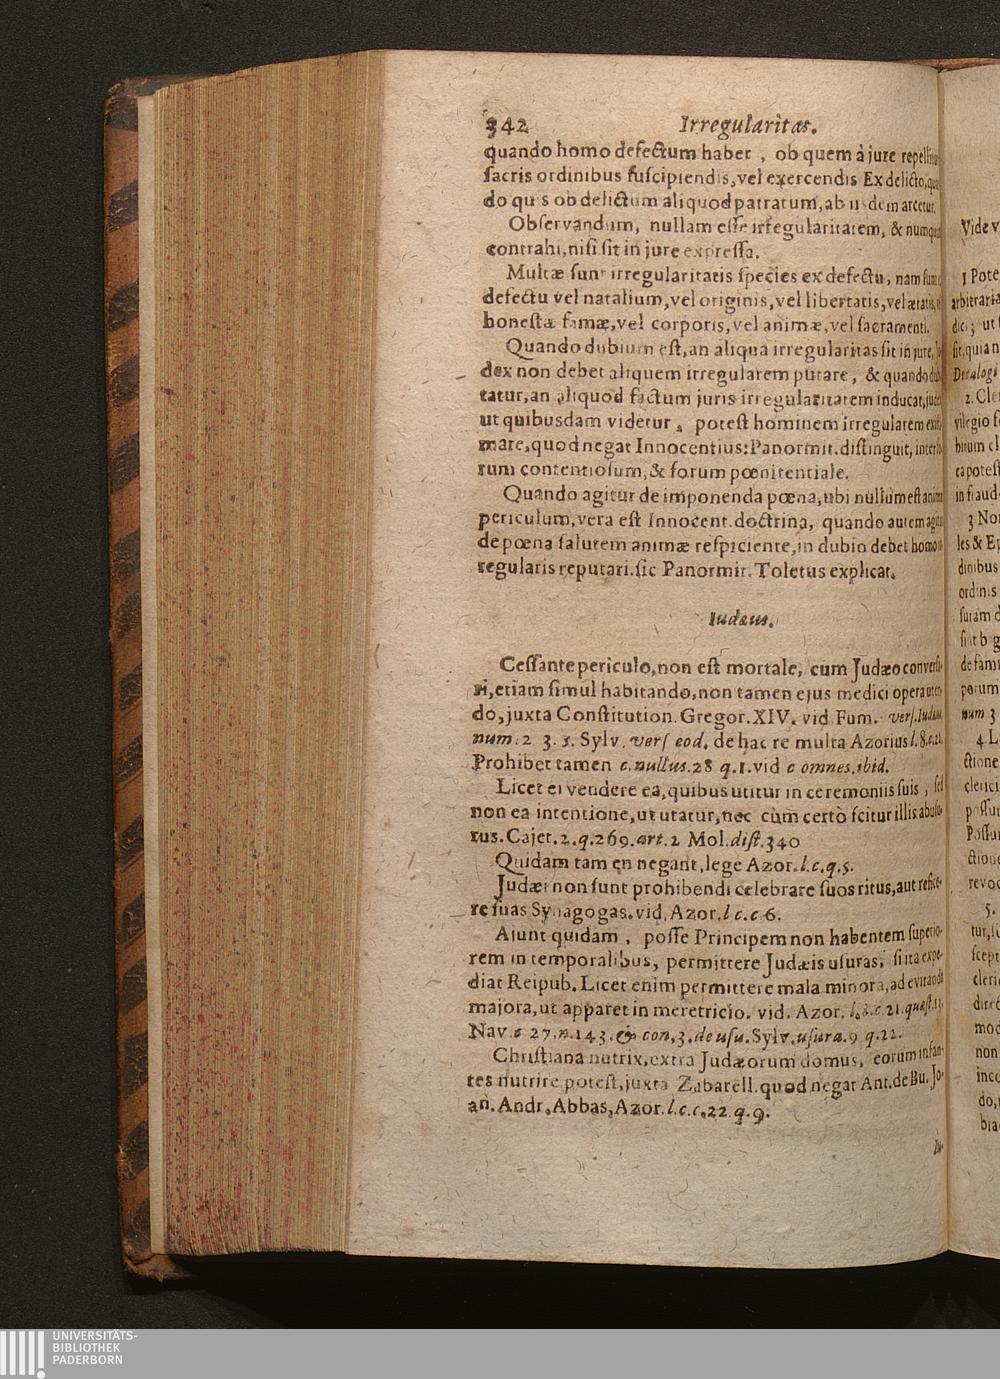 342 Irregularitas.
quando homo defectum habet, ob quem à jure repellitur
sacris ordinibus suscipiendis, vel exercendis Ex delicto, quã
do quis ob delictum aliquod patratum, ab iisdem arcetur.
Observandum, nullam esse irregularitatem, & numquã
contrahi, nisi sit in jure expressa.
Multæ sunt irregularitatis species ex defectu, nam sunt
defectu vel natalium, vel originis, vel libertatis, vel ætatis,
honestæ famæ, vel corporis, vel animæ, vel sacramenti.
Quando dubium est, an aliqua irregularitas sit in jure, Ju
dex non debet aliquem irregularem putare, & quando dubi
tatur, an aliquod factum juris irregularitatem inducat, judex
ut quibusdam videtur, potest hominem irregularem existi
mare, quod negat Innocentius: Panormit. distinguit, inter fo
rum contentiosum, & forum pœnitentiale.
Quando agitur de imponenda pœna, ubi nullum est animæ
periculum, vera est Innocent. doctrina, quando autem agitur
de pœna salutem animæ respiciente, in dubio debet homo ir
regularis reputari. sic Panormit. Toletus explicat.
Iudæus.
Cessante periculo, non est mortale, cum Judæo conversa-
ri, etiam simul habitando, non tamen ejus medici opera uten
do, juxta Constitution. Gregor. XIV. vid Fum. vers. Iudæus
num. 2 3. 5. Sylv. vers eod. de hac re multa Azorius l. 8. c. 22.
Prohibet tamen c. nullus. 28 q. 1. vid c omnes. ibid.
Licet ei vendere ea, quibus utitur in ceremoniis suis, sed
non ea intentione, ut utatur, nec cùm certò scitur illis abusu-
rus. Cajet. 2. q. 269. art. 2 Mol. dist. 340
Quidam tam en negant, lege Azor. l. c. q. 5.
Judæi non sunt prohibendi celebrare suos ritus, aut refice-
re suas Synagogas. vid, Azor. l c. c 6.
Aiunt quidam, posse Principem non habentem superio-
rem in temporalibus, permittere Judæis usuras, si ita expe-
diat Reipub. Licet enim permittere mala minora, ad evitanda
majora, ut apparet in meretricio. vid. Azor. l. 8. c. 21. quæst. 13.
Nav. c 27. n. 143. & con, 3. de usu. Sylv. usura. 9 q. 22.
Christiana nutrix, extra Judæorum domus, eorum infan-
tes nutrire potest, juxta Zabarell. quod negat Ant. de Bu. Jo-
an. Andr. Abbas, Azor. l. c. c. 22. q. 9.
Vide v
1 Pote
arbitraria
dici; ut
sit, quia n
Decalogi
2. Cle
vilegio
bitum cl
ca potest
in fraud
3 No
les & E
dinibus
ordinis
suram
de fam
num 3
4. L
ctione
clerici
possu
Possu
ctione
revoc
5.
scept
cleri
mod
non
ince
do,
bia
UNIVERSITÄTS-
BIBLIOTHEK
PADERBORN